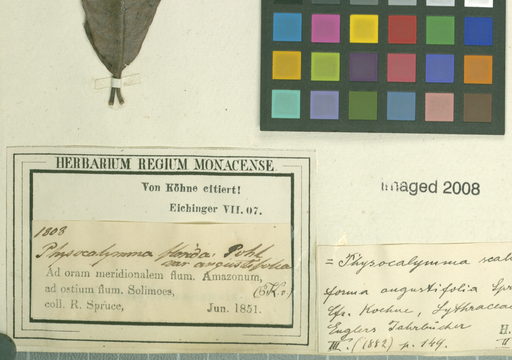 HERBARIUM REGIUM MONACENSE.
Von Köhne citiert!
Eichinger VII. 07.
1808
Physocalymma florida. Pohl
var angustifolia
Ad oram meridionalem flum. Amazonum,
ad ostium flum. Solimoes,
(K.)
coll. R. Spruce, Jun. 1851.
imaged 2008
= Physocalymma scab
forma angustifolia Spr
Cfr. Koehne, Lythracea
Englers Jahrbücher
III. (1882) p. 149. H.